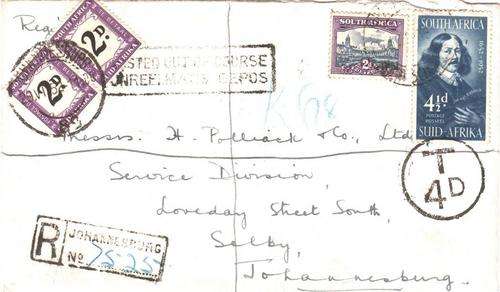 Regd
2D.
2D.
POSTED OUT OF COURSE
UNREELMATIG GEPOS
SOUTH AFRICA
2
SOUTH AFRICA
4½d
POSTAGE
POSSEËL
SUID-AFRIKA
K68
Messrs H. Polliack & Co., Ltd
Service Division,
Loveday Street South,
Selby,
Johannesburg.
T
4D
R
JOHANNESBURG
No. 7525